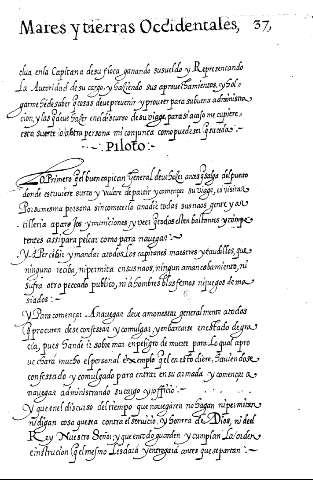 Mares y tierras Occidentales, 37,
dua en la Capitana de su fieta ganando su sueldo y Representando
La Autoridad de su cargo y haziendo sus aprouechamientos, y hol-
garme he de saber q cosas deue preuenir y proueer para su buena administra
cion, y las q deue hazer en el discurso de su viage, para si acaso me cupiere
esta suerte io a otra persona mi conjunta como puede ser q suceda
Piloto:
Lo Primero q el buen capitan General deue hazer antes q salga del punto
donde estuuiere surto y vuiere de partir y començar su viage, es visitar
Por su mesma persona sin cometerlo a nadie todas sus naos gente y ar-
tilleria aparejos y municiones y ver si todos ellos bastantes y compe-
tentes assi para pelear como para nauegar:
Y Apercibir y mandar a todos Los capitanes maestres y caudillos, que
ninguno reciba, ni permita en sus naos, ningun amancebamiento, ni
sufra otro peccado publico, ni a hombres blasfemos ni juegos dema-
siados:
Y Para començar A nauegar deue amonestar generalmente a todos
q procuren de se confessar y comulgar, y enbarcarse en estado de gra
cia, pues han de ir sobre mar en peligro de muerte para Lo qual apro
uechará mucho el personal exemplo q el en esto diere, hauiendose
confessado y comulgado para entrar en su armada y començar a
nauegar administrando su cargo y officio
Y que en el discurso del tiempo que nauegaren no hagan ni permitan
ni digan cosa que sea contra el seruicio, y honrra de Dios, ni del
Rey Nuestro Señor, y que en todo guarden y cumplan La orden
e instrucion q el mesmo Les dará y entregará antes que se partan: